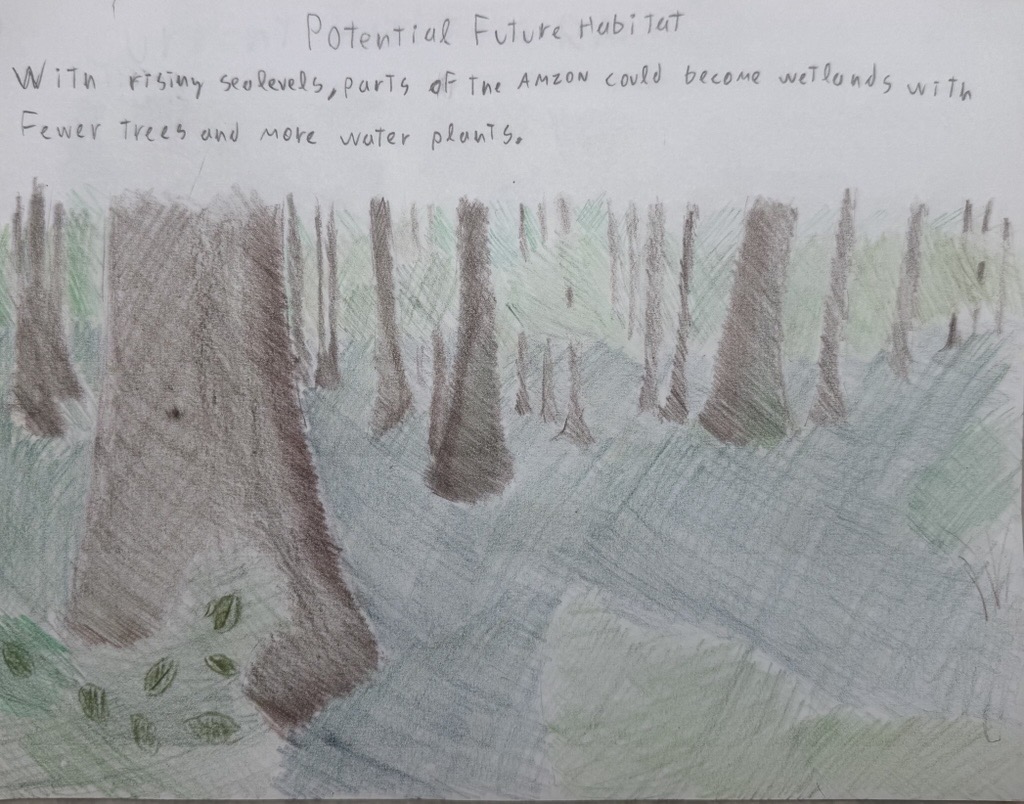 Potential Future Habitat
With rising sealevels, parts of the AMZON could become wetlands with
Fewer trees and more water plants.